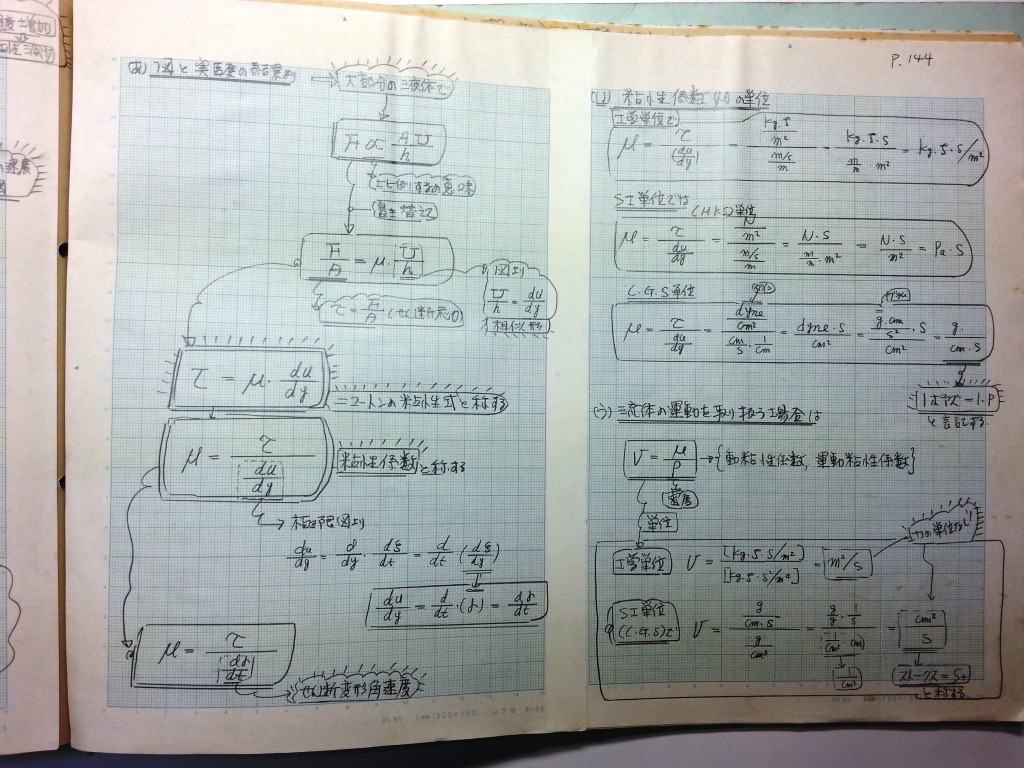 P.144
(あ) 図と実験の結果より
大部分の流体で
F ∝ AU/h
比例するの意味
書き替えて
F/A = μ・U/h
図より
U/h = du/dy
相似形
τ = F/A (せん断応力)
τ = μ・du/dy
ニュートンの粘性式と称する
μ = τ/(du/dy)
粘性係数と称する
極限図より
du/dy = d/dy・dξ/dt = d/dt(dξ/dy)
du/dy = d/dt・(γ) = dγ/dt
μ = τ/(dγ/dt)
せん断変形角速度
(い) 粘性係数μの単位
工学単位で
μ = τ/(du/dy) = (kg.f/m²)/((m/s)/m) = kg.f.s/((m/m)・m²) = kg.f.s/m²
SI単位では
(MKS)単位
μ = τ/(du/dy) = (N/m²)/((m/s)/m) = N・S/((m/m)・m²) = N・S/m² = Pa・S
C.G.S単位
μ = τ/(du/dy) = (dyne/cm²)/(cm/s・1/cm) = dyne・s/cm² = (g.cm/s²・s)/cm² = g/cm・s
1ポアズ=1・P
と言記する.
(う) 流体の運動を取り扱う場合は
ν = μ/ρ → {動粘性係数, 運動粘性係数}
密度
単位
力の単位なし
工学単位 ν = [kg.f.s/m²]/[kg.f.s²/m⁴] = m²/s
SI単位
(C.G.S)で ν = (g/cm・s)/(g/cm³) = (g/g・1/s)/(1/cm³・cm) = cm²/s
1/cm²
ストークス=St
と称する.